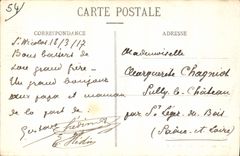 54
CARTE POSTALE
CORRESPONDANCE
ADRESSE
St Nicolas 18/3/17
Bons baisers de
son grand frère
Un grand bonjour
aux papa et maman
de la part de :
Gustave
Mademoiselle
Marguerite Chagniot
Sully-le-Château
par St Léger-du-Bois
(Saône-et-Loire)